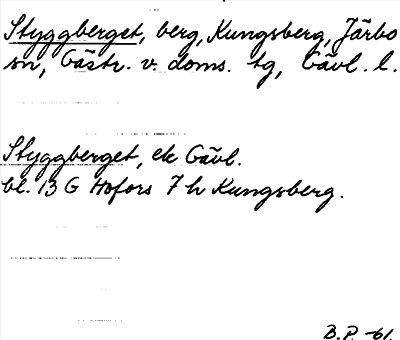 Styggberget, berg, Kungsberg, Järbo
sn, Gästr. v. doms. tg, Gävl. l.
Styggberget, ek Gävl.
bl. 13 G Hofors 7 h Kungsberg.
B.P. -61.